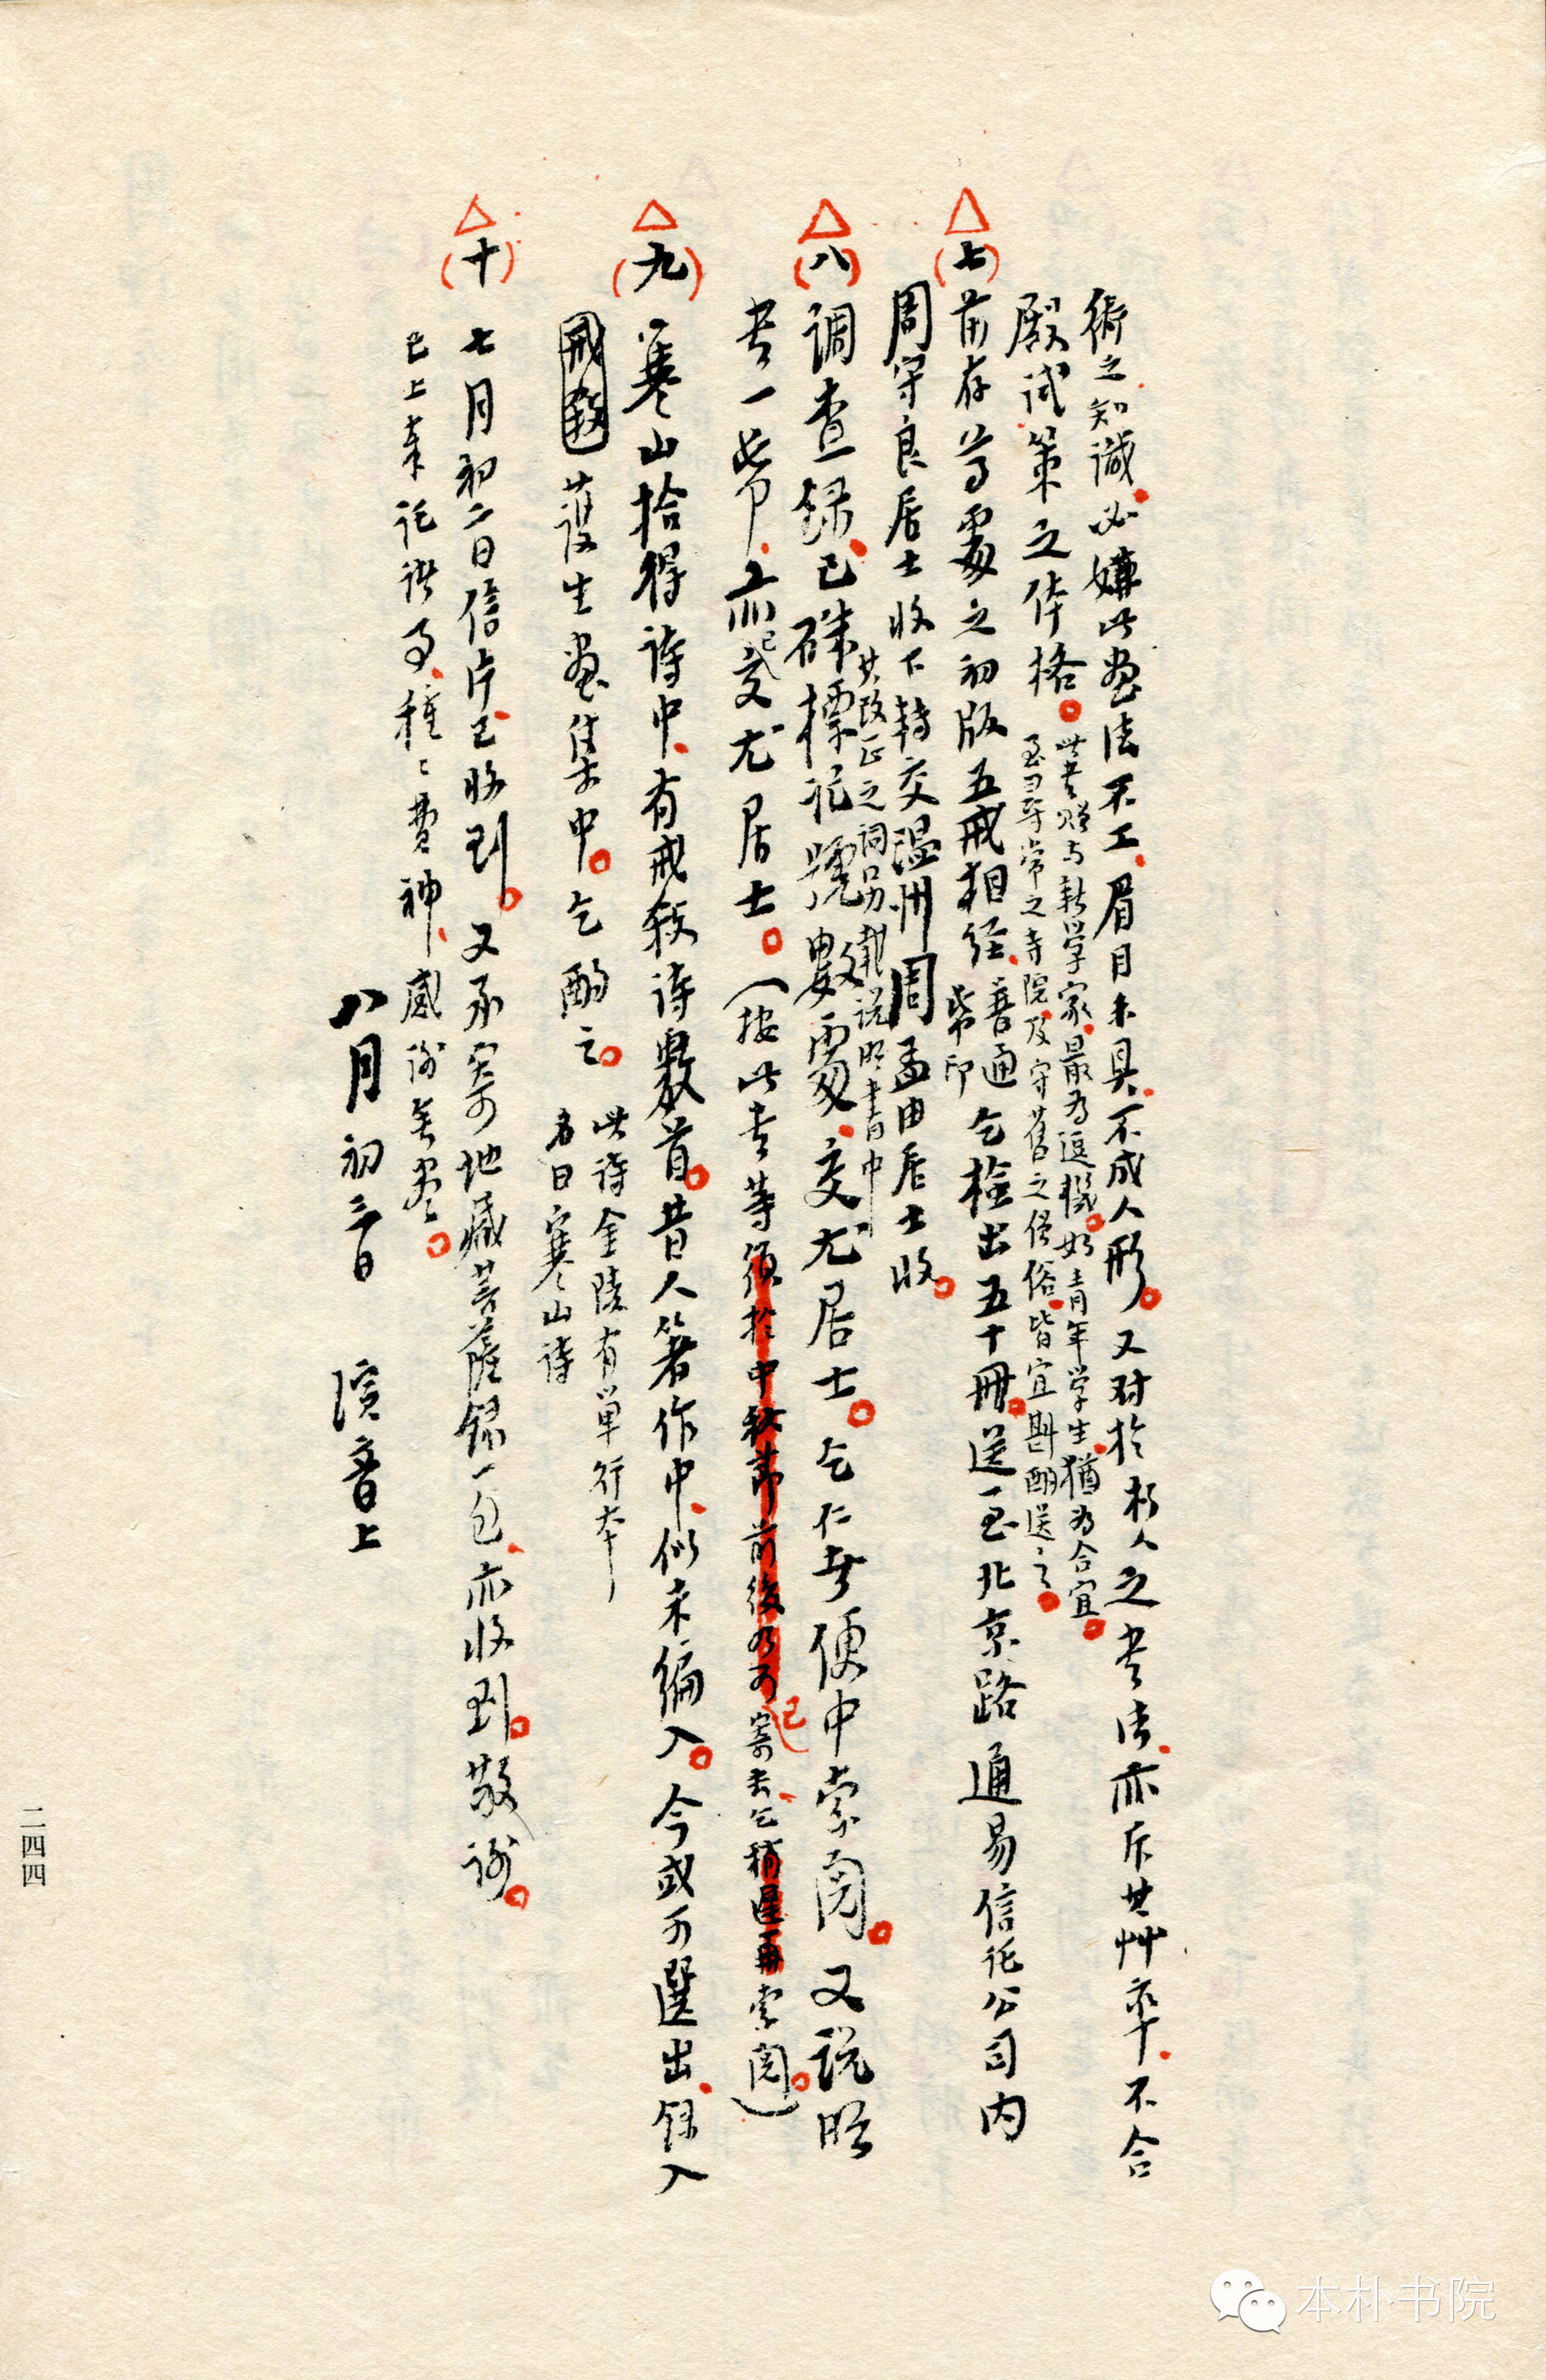 術之知識。必嫌此畫法不工、眉目未具、不成人形。又對於朽人之書法、亦斥其艸率、不合
殿試策之体格。
此書贈与新学家、最為逗機。如青年学生、猶為合宜。
至尋常之寺院、及守舊之僧俗、皆宜斟酌送之。
△(七)前存尊處之初版五戒相經、
普通
紫印
乞檢出五十冊、送至北京路通易信託公司內
周守良居士收下轉交溫州周孟由居士收。
△(八)調查錄、已硃標記號數處、交尤居士。乞仁者便中索閱。又說明
其改正之詞另載說明書中
書一紙、亦已交尤居士。(按此書等須於中秋節前後乃可已寄去、乞稍遲再索閱。)
△(九)寒山拾得詩中、有戒殺詩數首。昔人著作中、似未編入。今或可選出、錄入
戒殺護生畫集中。乞酌之。
此詩金陵有単行本
名曰寒山詩
△(十)七月初二日信片、已收到。又承寄地藏菩薩錄一包、亦收到。敬謝。
已上奉託諸事、種種費神、感謝無盡。
八月初三日 演音上
二四四
本朴书院